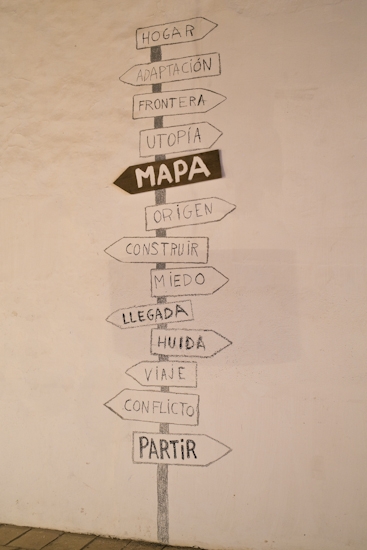 HOGAR
ADAPTACIÓN
FRONTERA
UTOPÍA
MAPA
ORIGEN
CONSTRUIR
MIEDO
LLEGADA
HUIDA
VIAJE
CONFLICTO
PARTIR